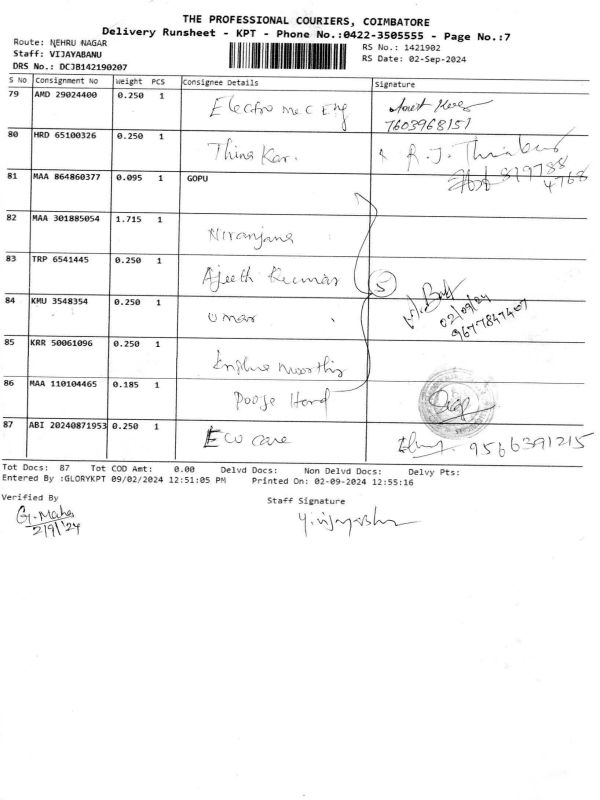 THE PROFESSIONAL COURIERS, COIMBATORE
Delivery Runsheet - KPT - Phone No.:0422-3505555 - Page No.:7
Route: NEHRU NAGAR
Staff: VIJAYABANU
DRS No.: DCJB142190207
RS No.: 1421902
RS Date: 02-Sep-2024
S No Consignment No Weight PCS Consignee Details Signature
79 AMD 29024400 0.250 1 Electro mec Eng
7603968151
80 HRD 65100326 0.250 1 Thina Kar. R.J.
819788
4768
81 MAA 864860377 0.095 1 GOPU
82 MAA 301885054 1.715 1 Niranjana
83 TRP 6541445 0.250 1 Ajeeth Kumar
5
84 KMU 3548354 0.250 1 Umar
02/09/24
9677847407
85 KRR 50061096 0.250 1
86 MAA 110104465 0.185 1 Pooja
87 ABI 20240871953 0.250 1 Eco care 9566391215
Tot Docs: 87 Tot COD Amt: 0.00 Delvd Docs: Non Delvd Docs: Delvy Pts:
Entered By :GLORYKPT 09/02/2024 12:51:05 PM Printed On: 02-09-2024 12:55:16
Verified By
Staff Signature
G. Maha
2/9/24